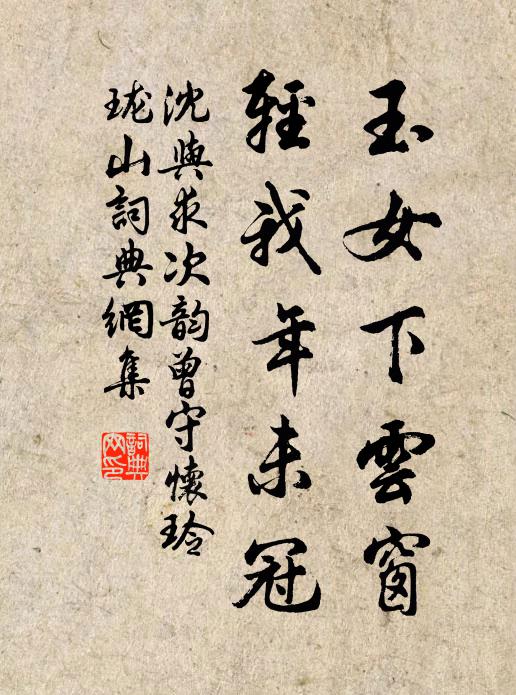 玉女下雲窗
輕我年未冠
沈與求次韵曾守懷玲
瓏山詞典網集
詞典
网印